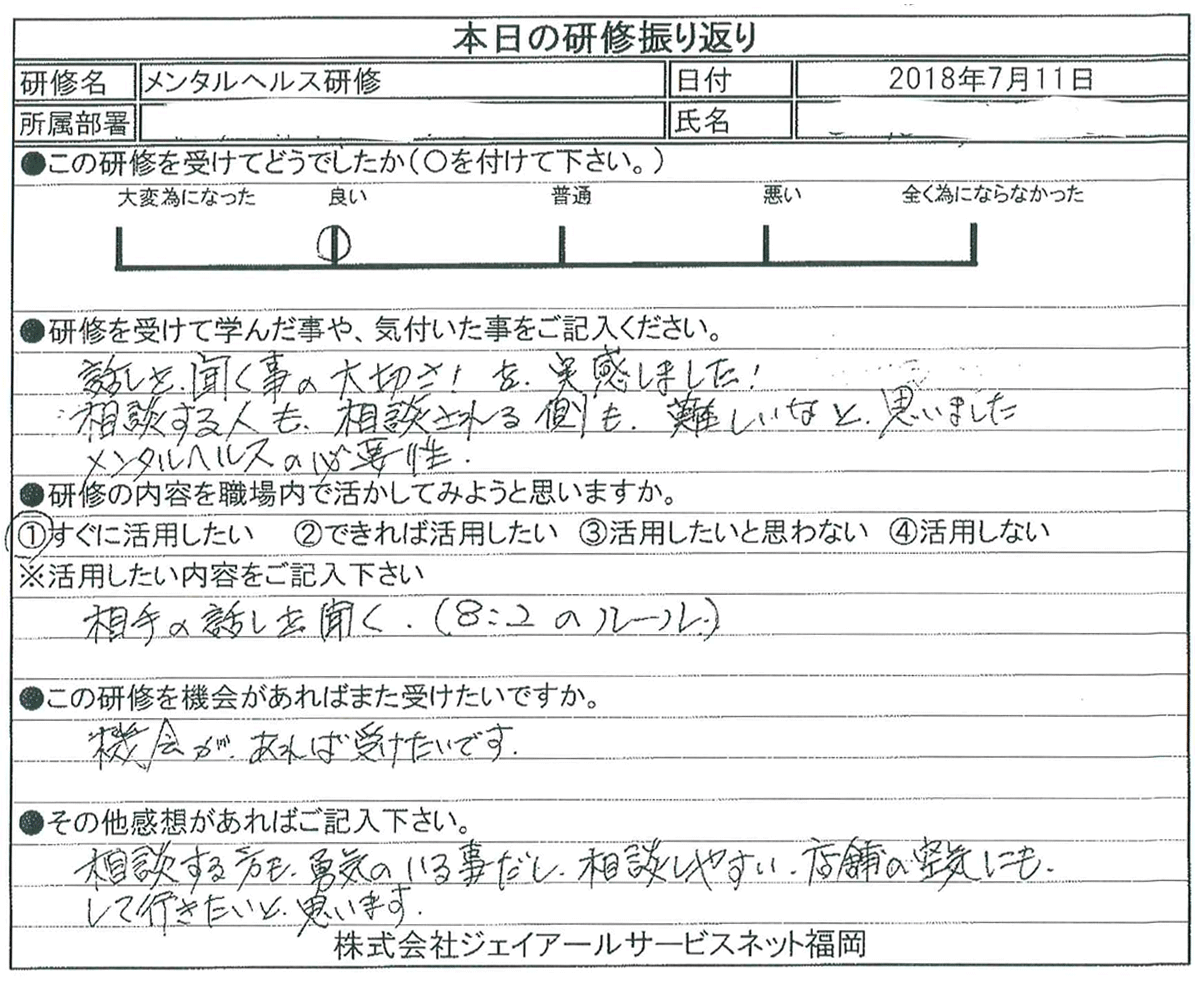 本日の研修振り返り
研修名 メンタルヘルス研修 日付 2018年7月11日
所属部署 氏名
●この研修を受けてどうでしたか(○を付けて下さい。)
大変為になった 良い 普通 悪い 全く為にならなかった
●研修を受けて学んだ事や、気付いた事をご記入ください。
話しを、聞く事の大切さ!を、実感しました!
相談する人も、相談される側も、難しいなと、思いました
メンタルヘルスの必要性.
●研修の内容を職場内で活かしてみようと思いますか。
①すぐに活用したい ②できれば活用したい ③活用したいと思わない ④活用しない
※活用したい内容をご記入下さい
相手の話しを聞く.(8:2のルール.)
●この研修を機会があればまた受けたいですか。
機会が、あれば受けたいです.
●その他感想があればご記入下さい。
相談する方も、勇気のいる事だし、相談しやすい、店舗の空気にも、
して行きたいと、思います.
株式会社ジェイアールサービスネット福岡